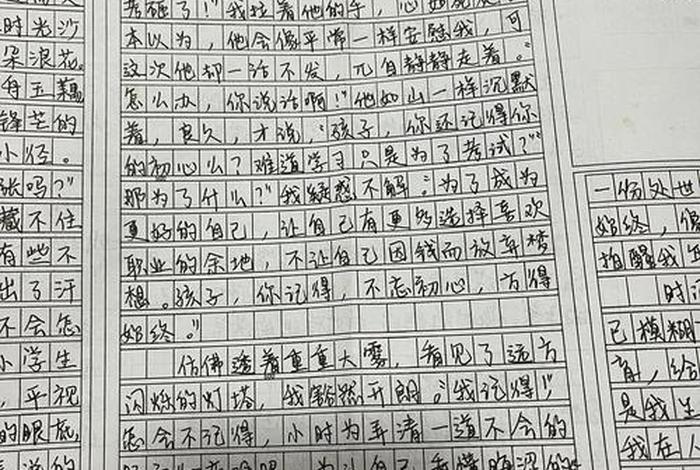 时光沙
朵浪花。
每玉藕
锋芒的
小径。
张吗?”
藏不住
有些不
出了汗
不会怎
小学生
,平视
的眼底,
考砸了!”我拉着他的手,心如
本以为,他会像平常一样安慰我,可
这次他却一话不发,兀自静静走着。“
怎么办,你说话啊!”他如山一样沉默
着,良久,才说,“孩子,你还记得你
的初心么?难道学习只是为了考试?”“
那为了什么?”我疑惑不解。“为了成为
更好的自己,让自己有更多选择喜欢
职业的余地,不让自己因钱而放弃梦
想。孩子,你记得,不忘初心,方得
始终。”
仿佛透着重重大雾,看见了远方
闪烁的灯塔,我豁然开朗。“我记得!”
怎会不记得,小时为弄清一道不会的
一份处世
始终,
拍醒我
时
已模糊
育,给
是我
我在